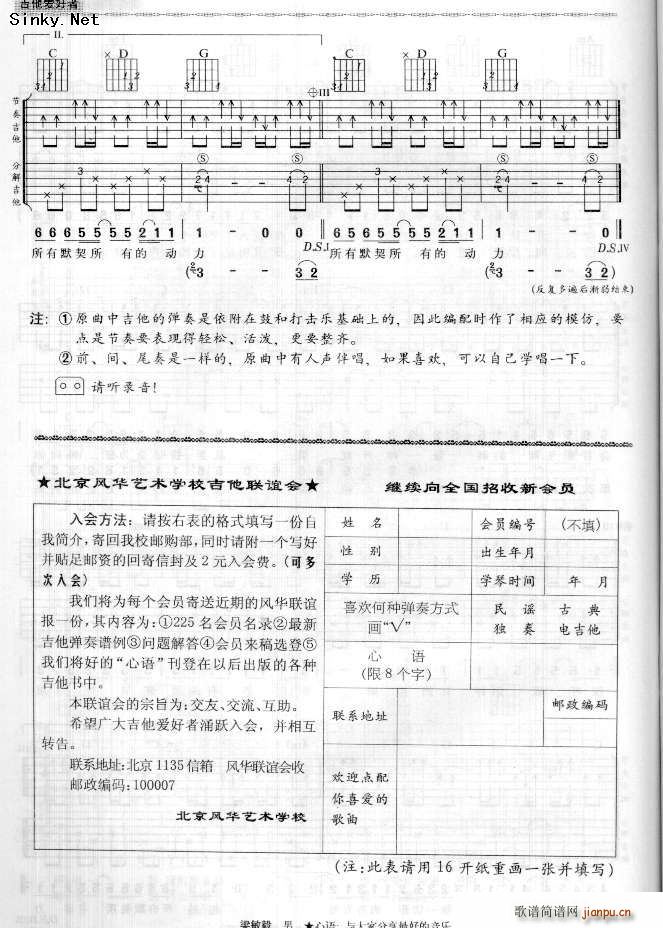 吉他爱好者
Sinky.Net
II.
C D G C D G
III
节奏吉他
分解吉他
6 6 6 5 5 5 5 2 1 1 1 - 0 0 6 6 6 5 5 5 5 2 1 1 1 - 0 0
D.S.I D.S.IV
所有默契所 有的 动 力 所有默契所 有的 动 力
(2/3 - - 3 2 (2/3 - - 3 2)
(反复多遍后渐弱结束)
注: ①原曲中吉他的弹奏是依附在鼓和打击乐基础上的, 因此编配时作了相应的模仿, 要
点是节奏要表现得轻松、活泼, 更要整齐。
②前、间、尾奏是一样的, 原曲中有人声伴唱, 如果喜欢, 可以自己学唱一下。
请听录音!
★北京风华艺术学校吉他联谊会★ 继续向全国招收新会员
入会方法: 请按右表的格式填写一份自
我简介,寄回我校邮购部,同时请附一个写好
并贴足邮资的回寄信封及2元入会费。(可多
次入会)
我们将为每个会员寄送近期的风华联谊
报一份,其内容为:①225名会员名录②最新
吉他弹奏谱例③问题解答④会员来稿选登⑤
我们将好的“心语”刊登在以后出版的各种
吉他书中。
本联谊会的宗旨为:交友、交流、互助。
希望广大吉他爱好者涌跃入会, 并相互
转告。
联系地址:北京1135信箱 风华联谊会收
邮政编码:100007
北京风华艺术学校
姓 名 会员编号 (不填)
性 别 出生年月
学 历 学琴时间 年 月
喜欢何种弹奏方式 民 谣 古 典
画“√” 独 奏 电吉他
心 语
(限8个字)
联系地址 邮政编码
欢迎点配
你喜爱的
歌曲
(注:此表请用16开纸重画一张并填写)
歌谱简谱网 jianpu.cn
梁敏毅 男 ★心语: 与大家分享最好的音乐